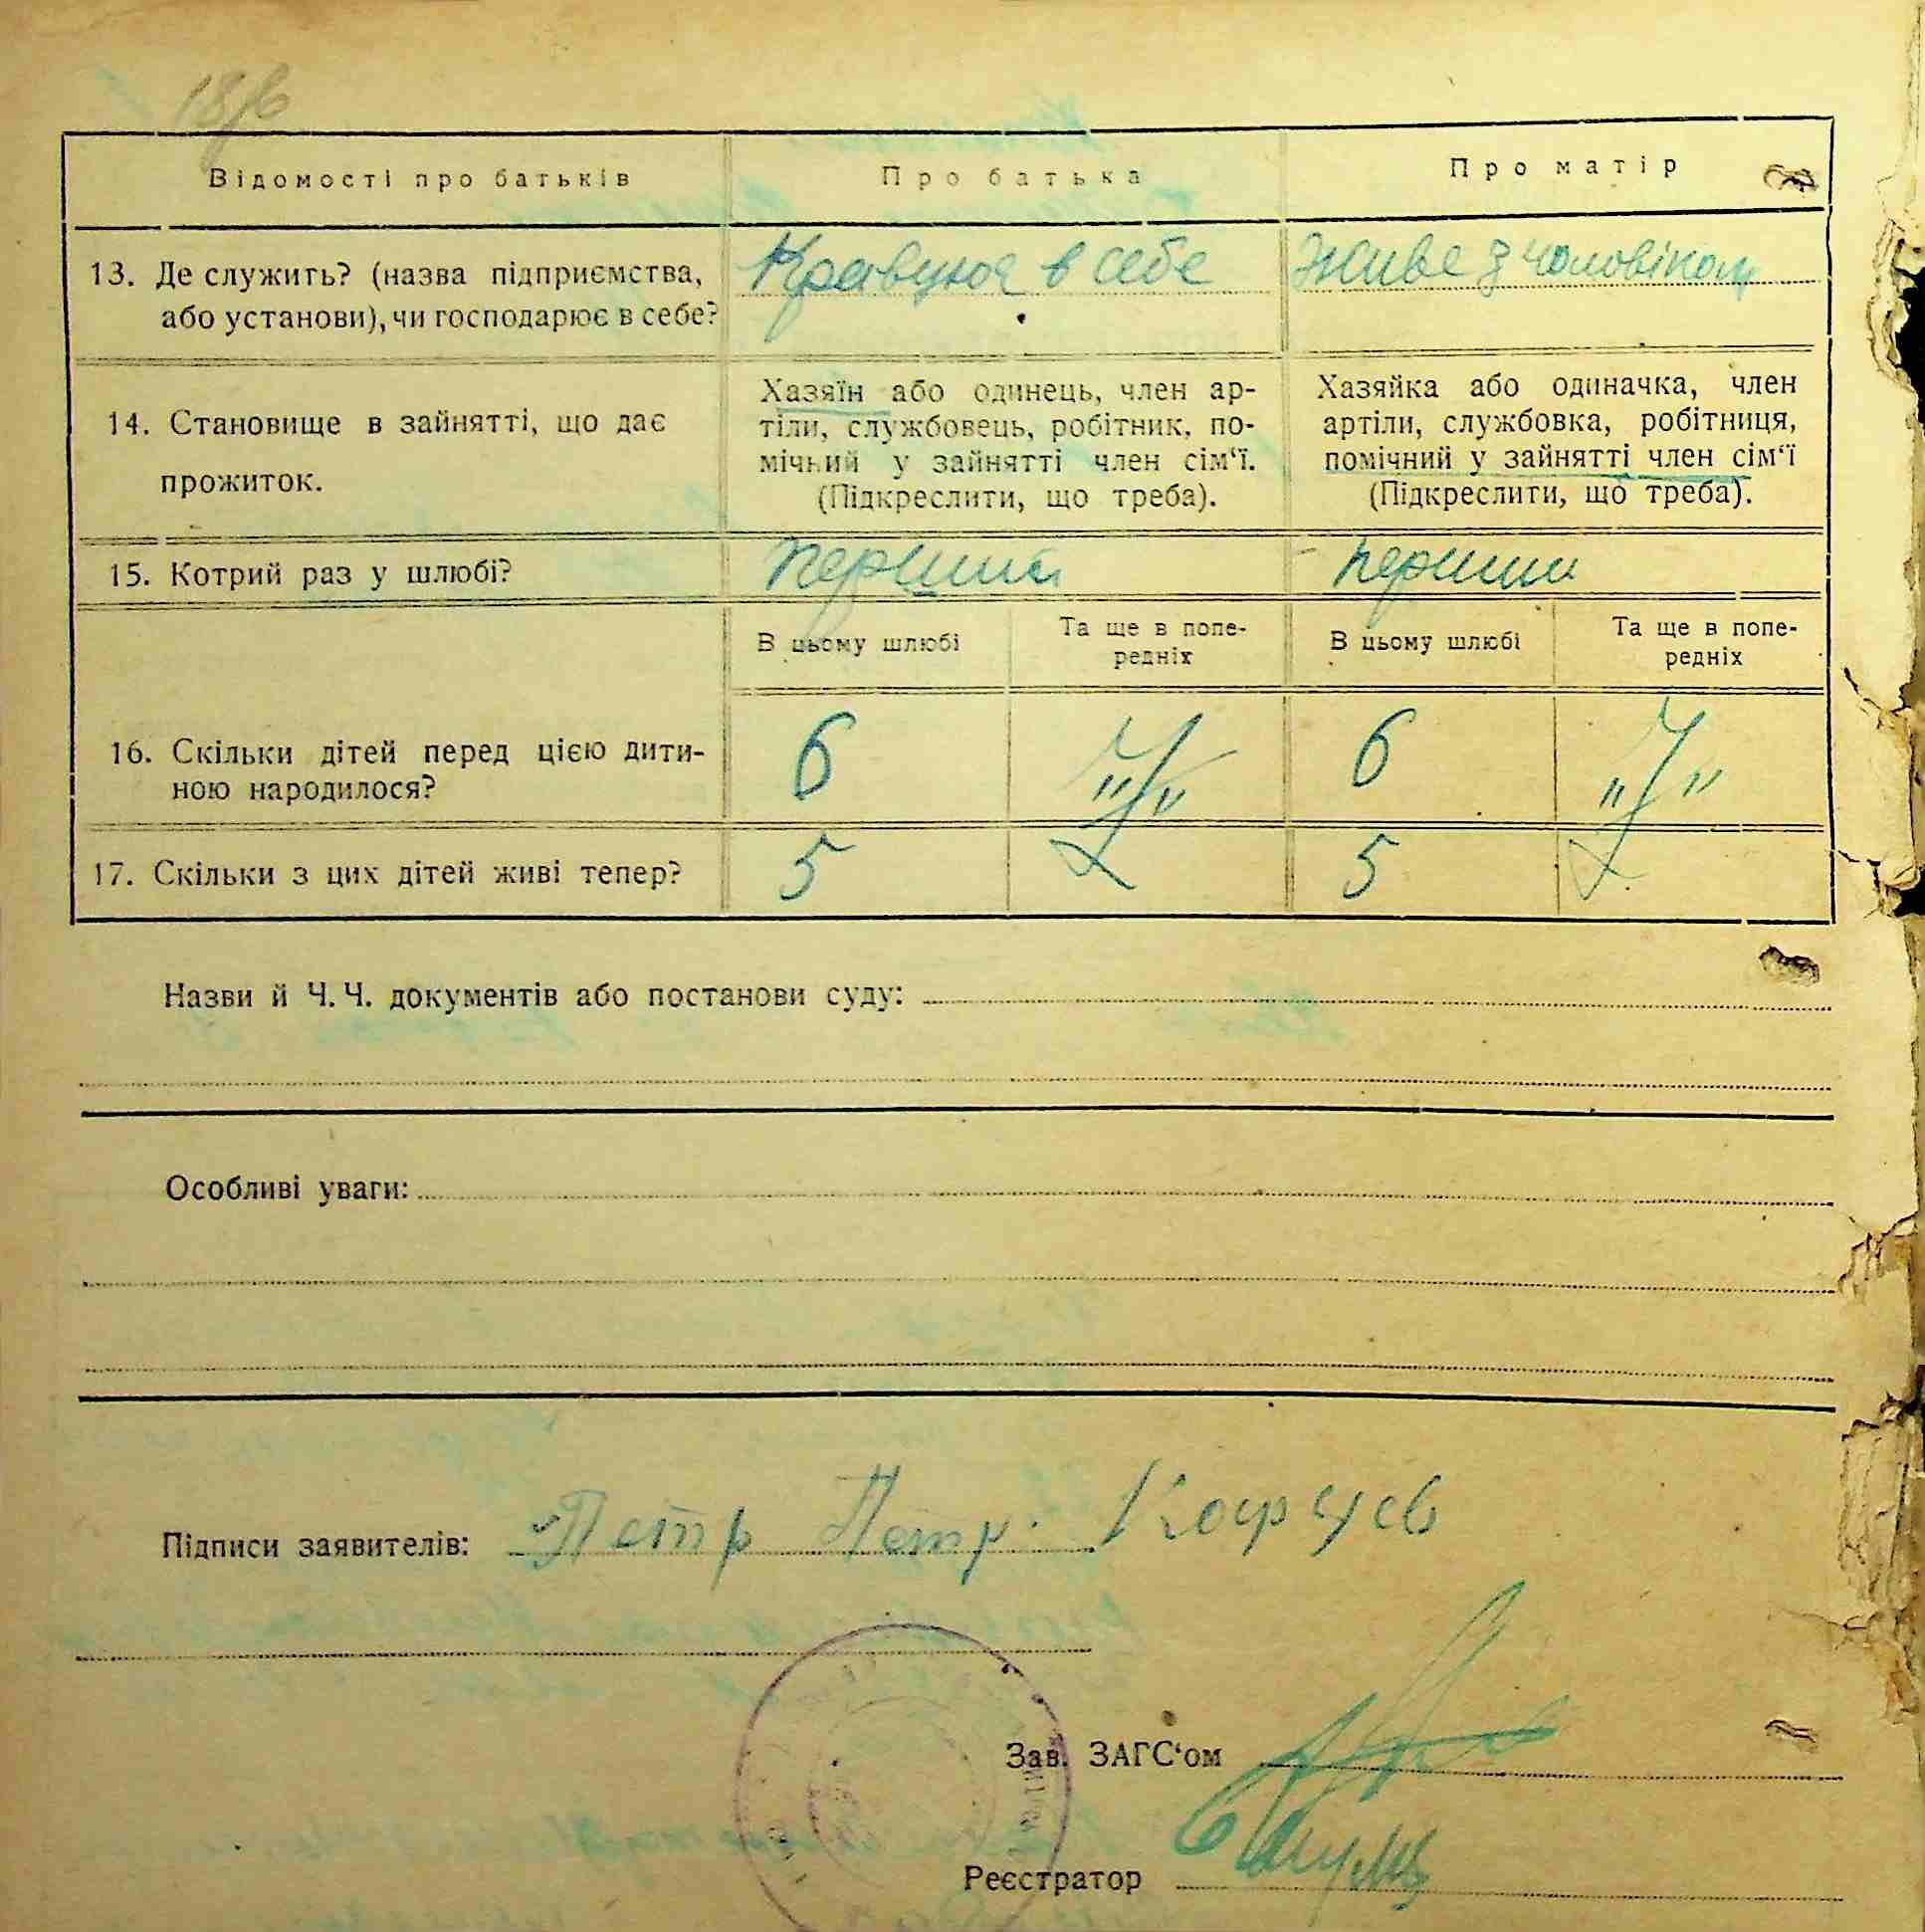 18/6
Відомості про батьків
Про батька
Про матір
13. Де служить? (назва підприємства,
або установи), чи господарює в себе?
Кравцює в себе
Живе з чоловіком
14. Становище в зайнятті, що дає
прожиток.
Хазяїн або одинець, член ар-
тіли, службовець, робітник, по-
мічний у зайнятті член сім‘ї.
(Підкреслити, що треба).
Хазяйка або одиначка, член
артіли, службовка, робітниця,
помічний у зайнятті член сім‘ї
(Підкреслити, що треба).
15. Котрий раз у шлюбі?
перший
перший
В цьому шлюбі
Та ще в попе-
редніх
В цьому шлюбі
Та ще в попе-
редніх
16. Скільки дітей перед цією дити-
ною народилося?
6
6
17. Скільки з цих дітей живі тепер?
5
5
Назви й Ч. Ч. документів або постанови суду:
Особливі уваги:
Підписи заявителів: Петр Петр.
Зав. ЗАГС‘ом
Реєстратор